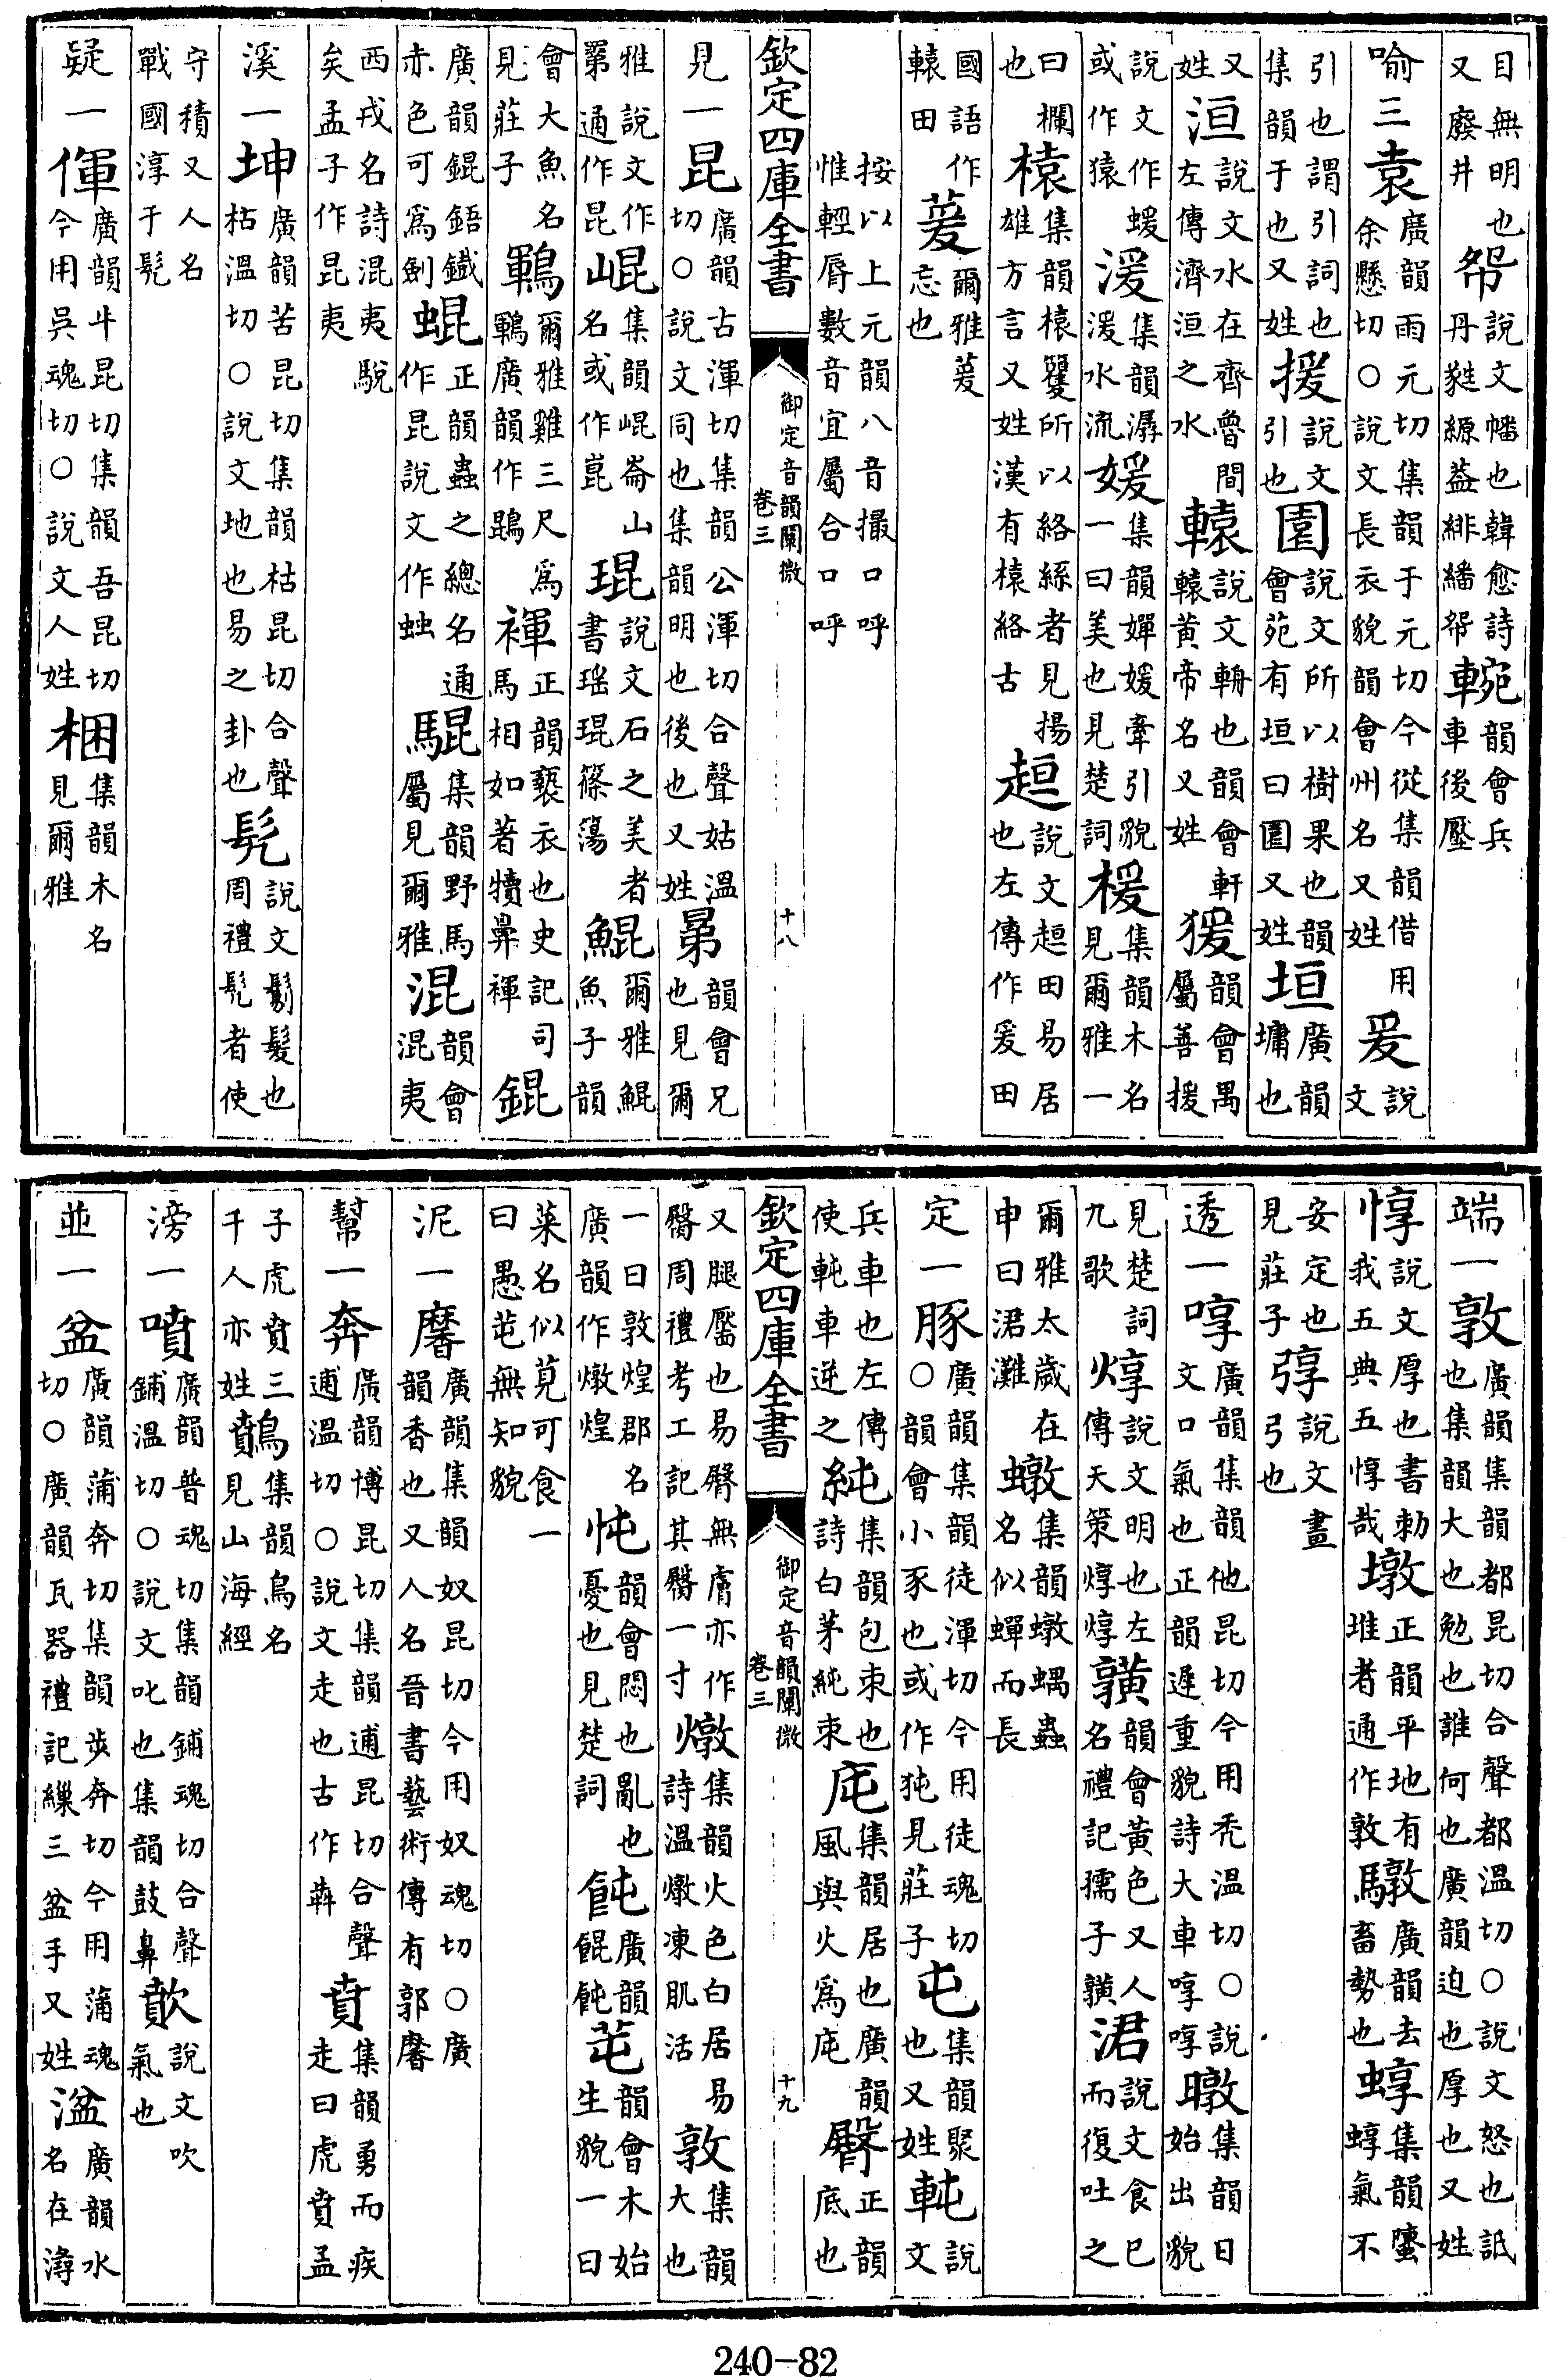 目無明也又廢井㠾說文幡也韓愈詩丹甤縓蓋緋繙㠾䡝韻會兵車後壓
喻三袁廣韻雨元切集韻于元切今從集韻借用余懸切○說文長衣貌韻會州名又姓爰說文
引也謂引詞也集韻于也又姓援說文引也園說文所以樹果也韻會苑有垣曰園又姓垣廣韻墉也
又姓洹說文水在齊魯間左傳濟洹之水轅說文輈也韻會軒轅黃帝名又姓猨韻會禺屬善援
說文作蝯或作猿湲集韻潺湲水流媛集韻嬋媛牽引貌一曰美也見楚詞楥集韻木名見爾雅一
曰欄也榬集韻榬籰所以絡絲者見揚雄方言又姓漢有榬絡古趄說文趄田易居也左傳作爰田
國語作轅田萲爾雅萲忘也
按以上元韻八音撮口呼惟輕脣數音宜屬合口呼
欽定四庫全書 御定音韻闡微 卷三 十八
見一昆廣韻古渾切集韻公渾切合聲姑溫切○說文同也集韻明也後也又姓晜韻會兄也見爾
雅說文作罤通作昆崐集韻崐崙山名或作崑琨說文石之美者書瑤琨篠簜鯤爾雅鯤魚子韻
會大魚名見莊子鶤爾雅雞三尺爲鶤廣韻作鵾褌正韻褻衣也史記司馬相如著犢鼻褌錕
廣韻錕鋙鐵赤色可爲劍蜫正韻蟲之總名通作昆說文作䖵騉集韻野馬屬見爾雅混韻會混夷
西戎名詩混夷駾矣孟子作昆夷
溪一坤廣韻苦昆切集韻枯昆切合聲枯溫切○說文地也易之卦也髡說文鬄髮也周禮髡者使
守積又人名戰國淳于髡
疑一㑮廣韻牛昆切集韻吾昆切今用吳魂切○說文人姓梱集韻木名見爾雅
端一敦廣韻集韻都昆切合聲都溫切○說文怒也詆也集韻大也勉也誰何也廣韻迫也厚也又姓
惇說文厚也書勅我五典五惇哉墩正韻平地有堆者通作敦驐廣韻去畜勢也蜳集韻䘆蜳氣不
安定也見莊子弴說文畫弓也
透一啍廣韻集韻他昆切今用禿溫切○說文口氣也正韻遲重貌詩大車啍啍暾集韻日始出貌
見楚詞九歌焞說文明也左傳天策焞焞黗韻會黃色又人名禮記孺子黗涒說文食已而復吐之
爾雅太歲在申曰涒灘蜳集韻蜳蝸蟲名似蟬而長
定一豚廣韻集韻徒渾切今用徒魂切○韻會小豕也或作㹠見莊子屯集韻聚也又姓軘說文
兵車也左傳使軘車逆之純集韻包束也詩白茅純束庉集韻居也廣韻風與火爲庉臀正韻底也
欽定四庫全書 御定音韻闡微 卷三 十九
又腿靨也易臀無膚亦作臋周禮考工記其臋一寸燉集韻火色白居易詩溫燉凍肌活敦集韻大也
一曰敦煌郡名廣韻作燉煌忳韻會悶也亂也憂也見楚詞飩廣韻餛飩芚韻會木始生貌一曰
菜名似莧可食一曰愚芚無知貌
泥一黁廣韻集韻奴昆切今用奴魂切○廣韻香也又人名晉書藝術傳有郭黁
幫一奔廣韻博昆切集韻逋昆切合聲逋溫切○說文走也古作犇賁集韻勇而疾走曰虎賁孟
子虎賁三千人亦姓鷬集韻鳥名見山海經
滂一噴廣韻普魂切集韻鋪魂切合聲鋪溫切○說文吒也集韻鼓鼻歕說文吹氣也
並一盆廣韻蒲奔切集韻步奔切今用蒲魂切○廣韻瓦器禮記繅三盆手又姓湓廣韻水名在潯
240-82